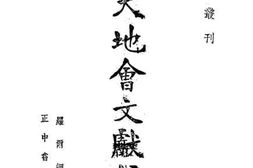 叢刊
天地會文獻
羅爾綱
正中書